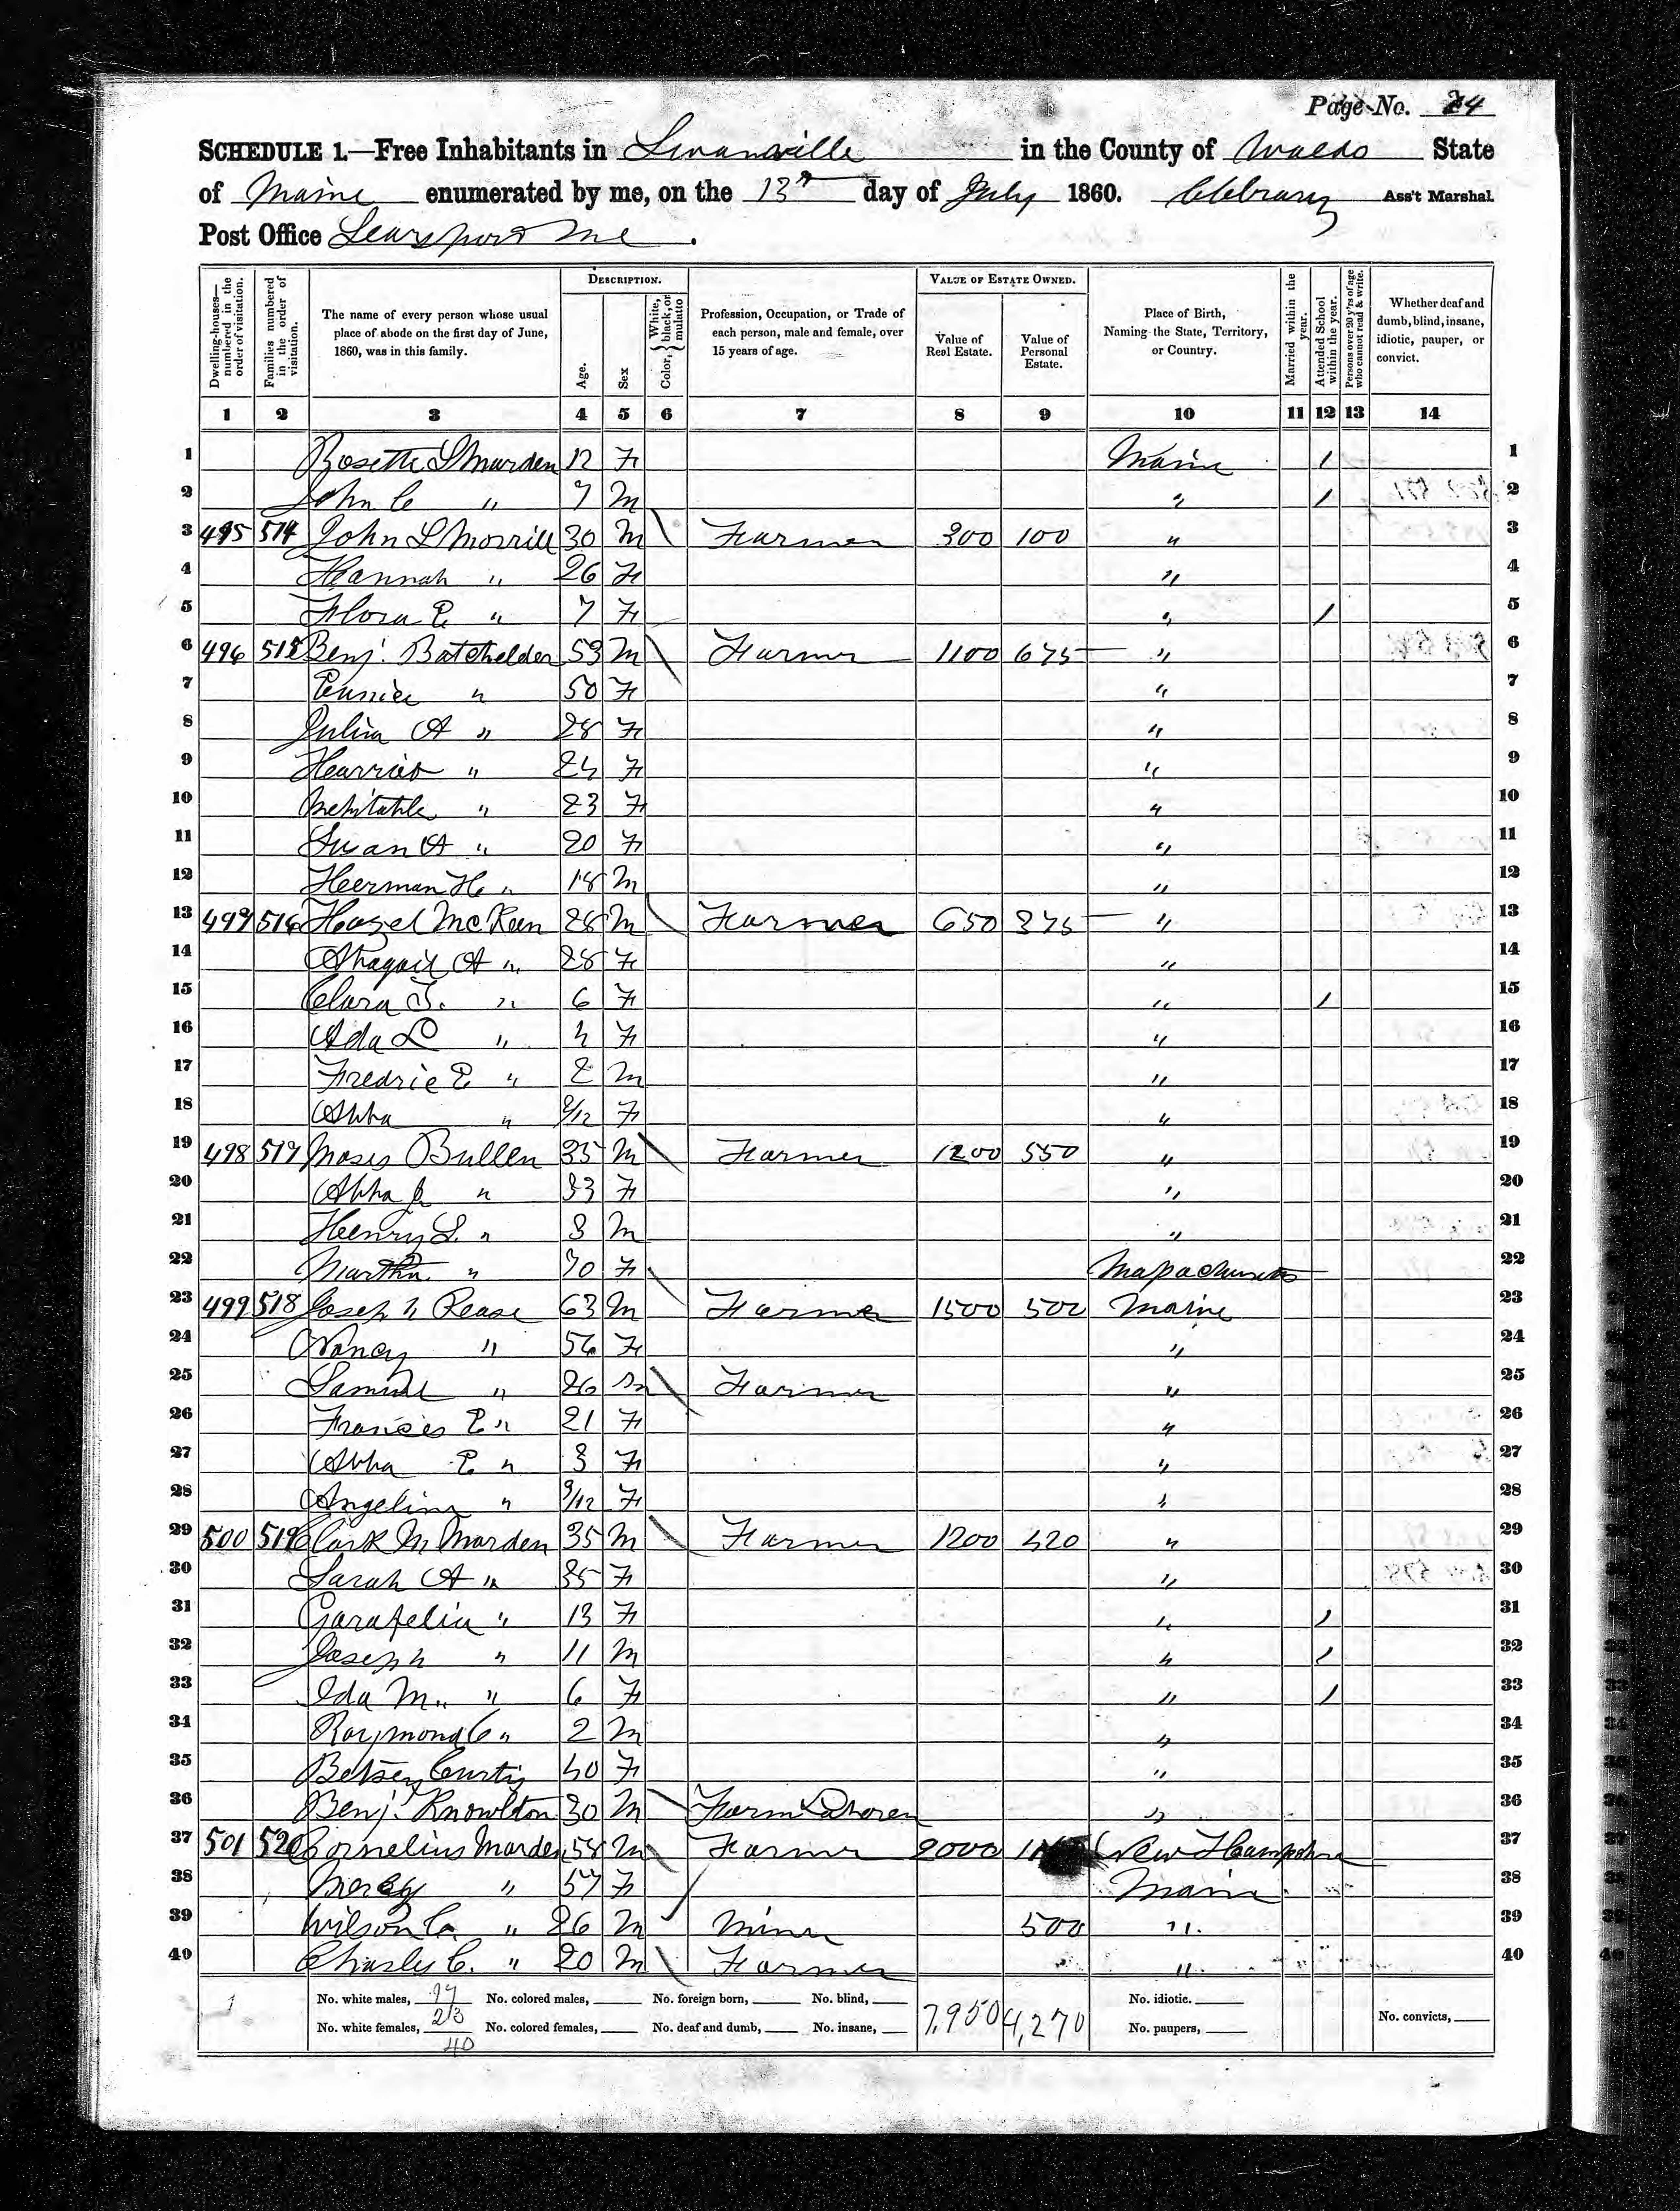 Page No. 24
SCHEDULE 1.—Free Inhabitants in Swanville in the County of Waldo State
of Maine enumerated by me, on the 13th day of July 1860. Ass't Marshal.
Post Office Searsport Me.
Dwelling-houses—numbered in the order of visitation.
Families numbered in the order of visitation.
The name of every person whose usual place of abode on the first day of June, 1860, was in this family.
DESCRIPTION.
Age.
Sex
Color, { White, black, or mulatto
Profession, Occupation, or Trade of each person, male and female, over 15 years of age.
VALUE OF ESTATE OWNED.
Value of Real Estate.
Value of Personal Estate.
Place of Birth, Naming the State, Territory, or Country.
Married within the year.
Attended School within the year.
Persons over 20 y'rs of age who cannot read & write.
Whether deaf and dumb, blind, insane, idiotic, pauper, or convict.
1 2 3 4 5 6 7 8 9 10 11 12 13 14
1 Rosette S Marden 12 F Maine / 1
2 John C " 7 M " / 2
3 495 514 John L Morrill 30 M \ Farmer 300 100 " 3
4 Hannah " 26 F " 4
5 Flora E " 7 F " / 5
6 496 515 Benj. Batchelder 53 M \ Farmer 1100 675 " 6
7 Eunice " 50 F " 7
8 Julia A " 28 F " 8
9 Harriet " 24 F " 9
10 Mehitable " 23 F " 10
11 Susan A " 20 F " 11
12 Heerman H " 18 M " 12
13 497 516 Hazel McKeen 28 M \ Farmer 650 375 " 13
14 Abagail A " 28 F " 14
15 Clara J. " 6 F " / 15
16 Ada L " 4 F " 16
17 Fredric E " 2 M " 17
18 Abba " /12 F " 18
19 498 517 Moses Bullen 35 M \ Farmer 1200 550 " 19
20 Abba " 33 F " 20
21 Henry S. " 3 M " 21
22 Martha " 70 F Massachusetts 22
23 499 518 Joseph Pease 63 M \ Farmer 1500 500 Maine 23
24 Nancy " 56 F " 24
25 Samuel " 26 M \ Farmer " 25
26 Francis E " 21 F " 26
27 Abba E " 3 F " 27
28 Angelina " 9/12 F " 28
29 500 519 Clark M Marden 35 M \ Farmer 1200 420 " 29
30 Sarah A " 35 F " 30
31 Garafelia " 13 F " / 31
32 Joseph " 11 M " / 32
33 Ida M. " 6 F " / 33
34 Raymond C " 2 M " 34
35 Betsey Curtis 40 F " 35
36 Benj. Knowlton 30 M \ Farm Laborer " 36
37 501 520 Cornelius Marden 58 M \ Farmer 2000 New Hampshire 37
38 Mercy " 57 F Maine 38
39 Wilson C. " 26 M / Miner 500 " 39
40 Charles C. " 20 M \ Farmer " 40
No. white males, 17 No. colored males, No. foreign born, No. blind, 7,950 4,270 No. idiotic.
No. white females, 23 No. colored females, No. deaf and dumb, No. insane, No. paupers, No. convicts,
40